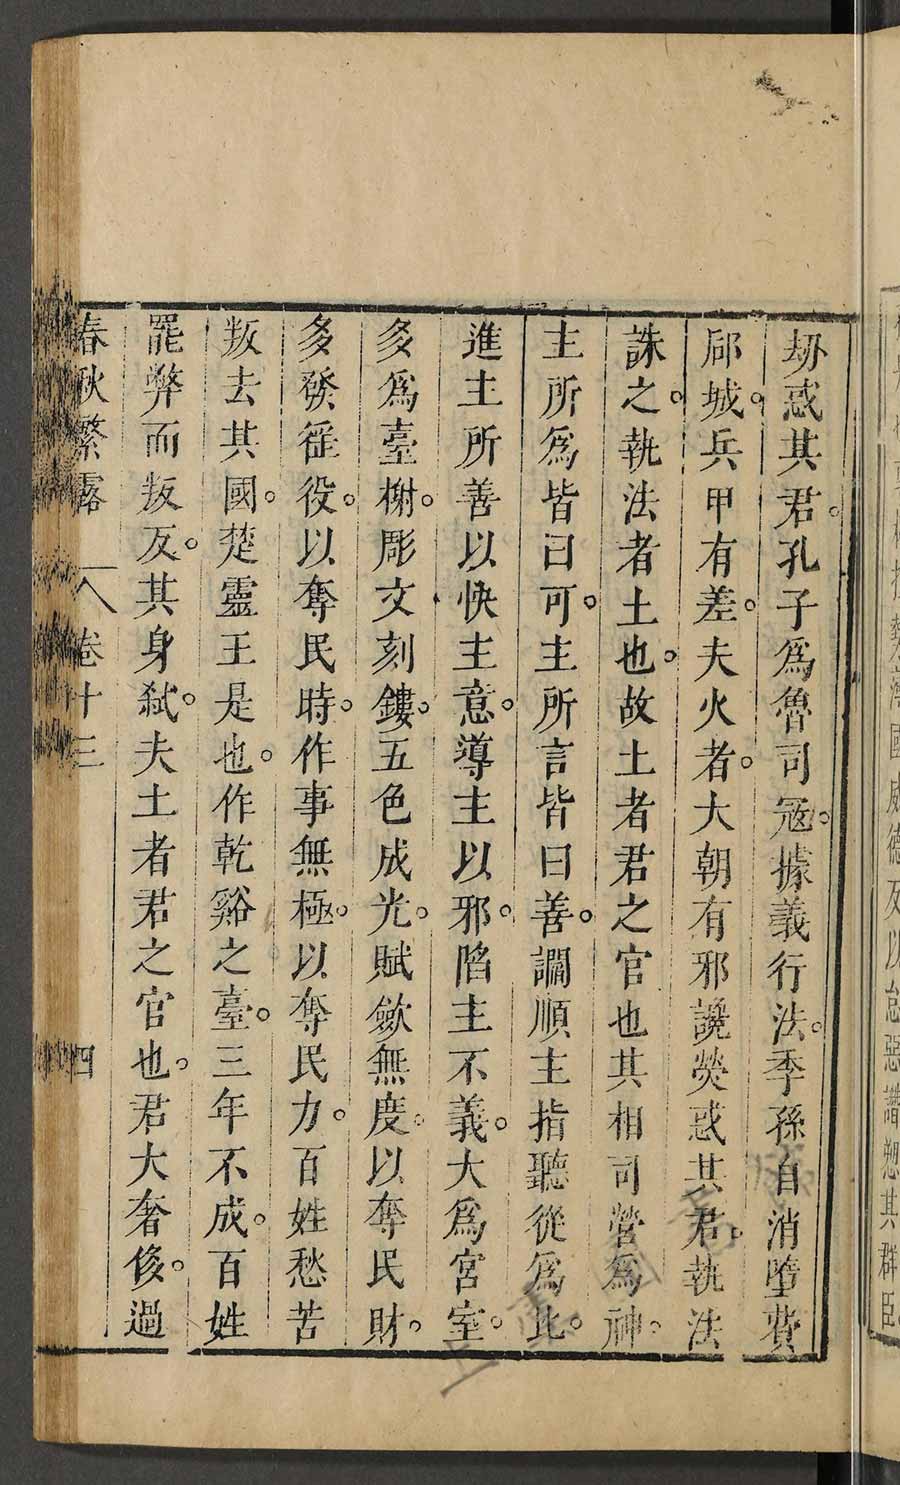 劫惑其君。孔子爲魯司寇。據義行法。季孫自消墮費
郈城。兵甲有差。夫火者。大朝有邪讒熒惑其君。執法
誅之。執法者土也。故土者君之官也其相司營爲神。
主所爲皆曰可。主所言皆曰善。讇順主指聽從爲比。
進主所善以快主意。導主以邪。陷主不義。大爲宮室。
多爲臺榭。彫文刻鏤。五色成光。賦歛無度。以奪民財。
多發徭役。以奪民時。作事無極。以奪民力。百姓愁苦
叛去其國。楚靈王是也。作乾谿之臺。三年不成。百姓
罷弊而叛反。其身弑。夫土者君之官也。君大奢侈。過
春秋繁露 卷十三 四
國威德反以怠惡譖愬其群臣